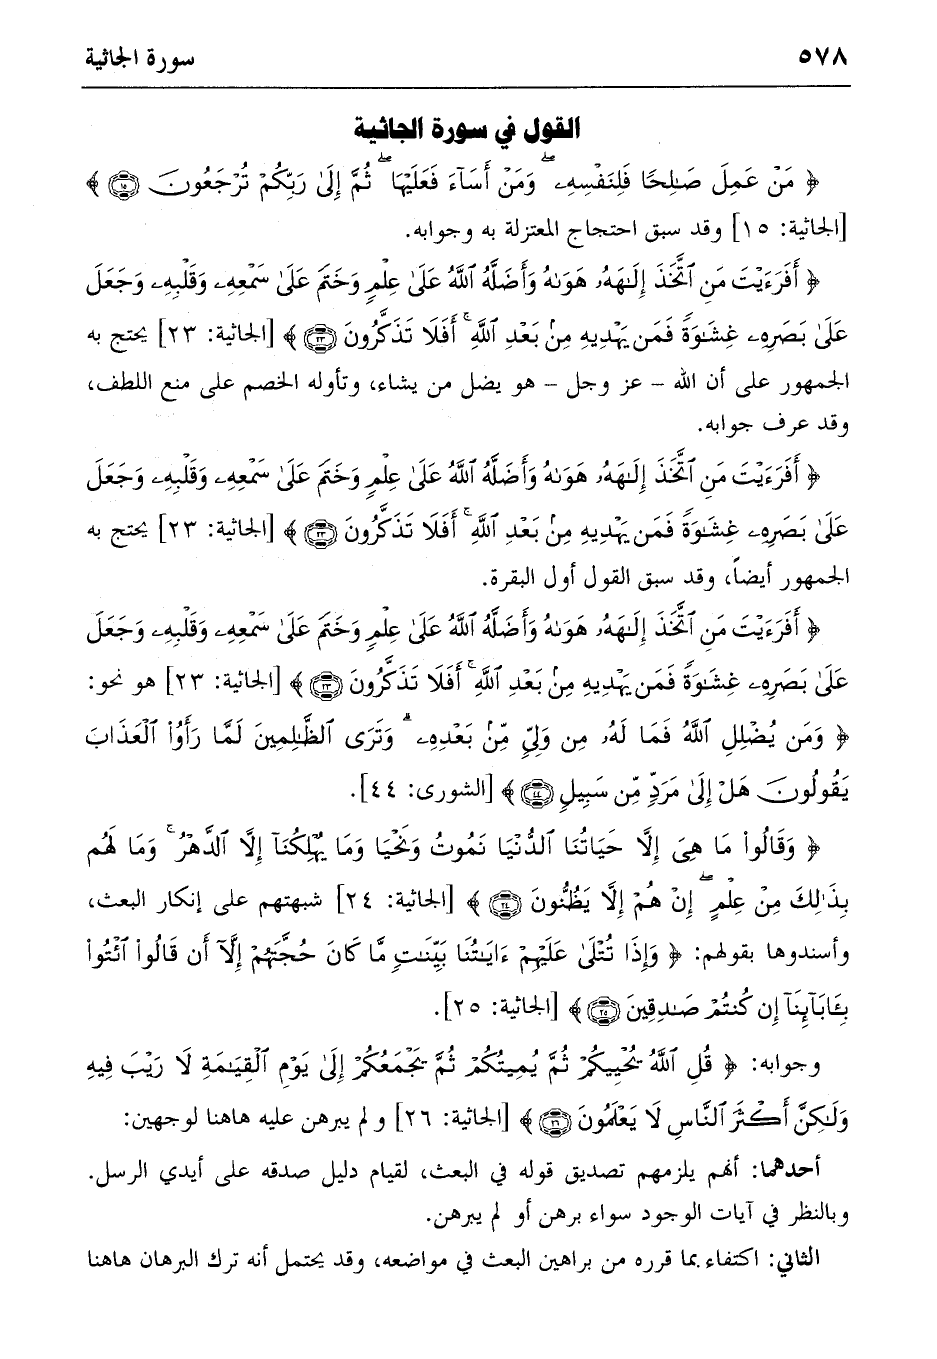 ٥٧٨ سورة الجاثية
القول في سورة الجاثية
﴿ مَنْ عَمِلَ صَـٰلِحًا فَلِنَفْسِهِۦ ۖ وَمَنْ أَسَآءَ فَعَلَيْهَا ۖ ثُمَّ إِلَىٰ رَبِّكُمْ تُرْجَعُونَ ۝١٥ ﴾
[الجاثية: ١٥] وقد سبق احتجاج المعتزلة به وجوابه.
﴿ أَفَرَءَيْتَ مَنِ ٱتَّخَذَ إِلَـٰهَهُۥ هَوَىٰهُ وَأَضَلَّهُ ٱللَّهُ عَلَىٰ عِلْمٍ وَخَتَمَ عَلَىٰ سَمْعِهِۦ وَقَلْبِهِۦ وَجَعَلَ
عَلَىٰ بَصَرِهِۦ غِشَـٰوَةً فَمَن يَهْدِيهِ مِنۢ بَعْدِ ٱللَّهِ ۚ أَفَلَا تَذَكَّرُونَ ۝٢٣ ﴾ [الجاثية: ٢٣] يحتج به
الجمهور على أن الله - عز وجل - هو يضل من يشاء، وتأوله الخصم على منع اللطف،
وقد عرف جوابه.
﴿ أَفَرَءَيْتَ مَنِ ٱتَّخَذَ إِلَـٰهَهُۥ هَوَىٰهُ وَأَضَلَّهُ ٱللَّهُ عَلَىٰ عِلْمٍ وَخَتَمَ عَلَىٰ سَمْعِهِۦ وَقَلْبِهِۦ وَجَعَلَ
عَلَىٰ بَصَرِهِۦ غِشَـٰوَةً فَمَن يَهْدِيهِ مِنۢ بَعْدِ ٱللَّهِ ۚ أَفَلَا تَذَكَّرُونَ ۝٢٣ ﴾ [الجاثية: ٢٣] يحتج به
الجمهور أيضاً، وقد سبق القول أول البقرة.
﴿ أَفَرَءَيْتَ مَنِ ٱتَّخَذَ إِلَـٰهَهُۥ هَوَىٰهُ وَأَضَلَّهُ ٱللَّهُ عَلَىٰ عِلْمٍ وَخَتَمَ عَلَىٰ سَمْعِهِۦ وَقَلْبِهِۦ وَجَعَلَ
عَلَىٰ بَصَرِهِۦ غِشَـٰوَةً فَمَن يَهْدِيهِ مِنۢ بَعْدِ ٱللَّهِ ۚ أَفَلَا تَذَكَّرُونَ ۝٢٣ ﴾ [الجاثية: ٢٣] هو نحو:
﴿ وَمَن يُضْلِلِ ٱللَّهُ فَمَا لَهُۥ مِن وَلِىٍّ مِّنۢ بَعْدِهِۦ ۗ وَتَرَى ٱلظَّـٰلِمِينَ لَمَّا رَأَوُا۟ ٱلْعَذَابَ
يَقُولُونَ هَلْ إِلَىٰ مَرَدٍّ مِّن سَبِيلٍ ۝٤٤ ﴾ [الشورى: ٤٤].
﴿ وَقَالُوا۟ مَا هِىَ إِلَّا حَيَاتُنَا ٱلدُّنْيَا نَمُوتُ وَنَحْيَا وَمَا يُهْلِكُنَآ إِلَّا ٱلدَّهْرُ ۚ وَمَا لَهُم
بِذَٰلِكَ مِنْ عِلْمٍ ۖ إِنْ هُمْ إِلَّا يَظُنُّونَ ۝٢٤ ﴾ [الجاثية: ٢٤] شبهتهم على إنكار البعث،
وأسندوها بقولهم: ﴿ وَإِذَا تُتْلَىٰ عَلَيْهِمْ ءَايَـٰتُنَا بَيِّنَـٰتٍ مَّا كَانَ حُجَّتَهُمْ إِلَّآ أَن قَالُوا۟ ٱئْتُوا۟
بِـَٔابَآئِنَآ إِن كُنتُمْ صَـٰدِقِينَ ۝٢٥ ﴾ [الجاثية: ٢٥].
وجوابه: ﴿ قُلِ ٱللَّهُ يُحْيِيكُمْ ثُمَّ يُمِيتُكُمْ ثُمَّ يَجْمَعُكُمْ إِلَىٰ يَوْمِ ٱلْقِيَـٰمَةِ لَا رَيْبَ فِيهِ
وَلَـٰكِنَّ أَكْثَرَ ٱلنَّاسِ لَا يَعْلَمُونَ ۝٢٦ ﴾ [الجاثية: ٢٦] و لم يبرهن عليه هاهنا لوجهين:
أحدهما: أنهم يلزمهم تصديق قوله في البعث، لقيام دليل صدقه على أيدي الرسل.
وبالنظر في آيات الوجود سواء برهن أو لم يبرهن.
الثاني: اكتفاء بما قرره من براهين البعث في مواضعه، وقد يحتمل أنه ترك البرهان هاهنا